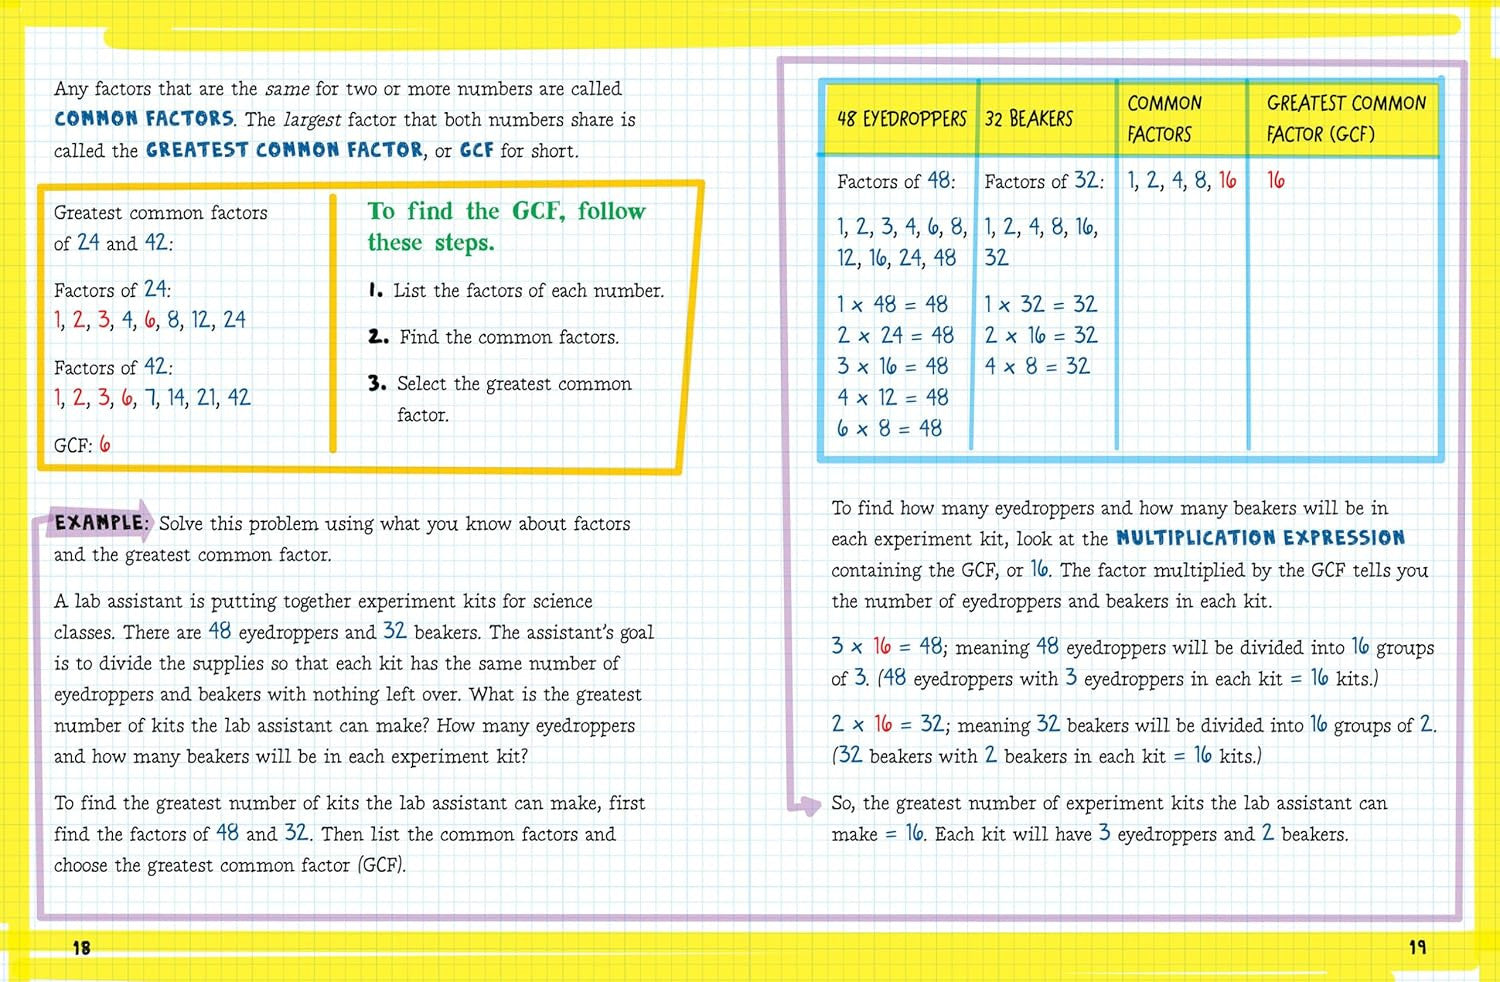 Any factors that are the same for two or more numbers are called
COMMON FACTORS. The largest factor that both numbers share is
called the GREATEST COMMON FACTOR, or GCF for short.
Greatest common factors
of 24 and 42:
Factors of 24:
1, 2, 3, 4, 6, 8, 12, 24
Factors of 42:
1, 2, 3, 6, 7, 14, 21, 42
GCF: 6
To find the GCF, follow
these steps.
1. List the factors of each number.
2. Find the common factors.
3. Select the greatest common
factor.
EXAMPLE: Solve this problem using what you know about factors
and the greatest common factor.
A lab assistant is putting together experiment kits for science
classes. There are 48 eyedroppers and 32 beakers. The assistant's goal
is to divide the supplies so that each kit has the same number of
eyedroppers and beakers with nothing left over. What is the greatest
number of kits the lab assistant can make? How many eyedroppers
and how many beakers will be in each experiment kit?
To find the greatest number of kits the lab assistant can make, first
find the factors of 48 and 32. Then list the common factors and
choose the greatest common factor (GCF).
18
48 EYEDROPPERS
32 BEAKERS
COMMON
FACTORS
GREATEST COMMON
FACTOR (GCF)
Factors of 48:
1, 2, 3, 4, 6, 8,
12, 16, 24, 48
1 x 48 = 48
2 x 24 = 48
3 x 16 = 48
4 x 12 = 48
6 x 8 = 48
Factors of 32:
1, 2, 4, 8, 16,
32
1 x 32 = 32
2 x 16 = 32
4 x 8 = 32
1, 2, 4, 8, 16
16
To find how many eyedroppers and how many beakers will be in
each experiment kit, look at the MULTIPLICATION EXPRESSION
containing the GCF, or 16. The factor multiplied by the GCF tells you
the number of eyedroppers and beakers in each kit.
3 x 16 = 48; meaning 48 eyedroppers will be divided into 16 groups
of 3. (48 eyedroppers with 3 eyedroppers in each kit = 16 kits.)
2 x 16 = 32; meaning 32 beakers will be divided into 16 groups of 2.
(32 beakers with 2 beakers in each kit = 16 kits.)
So, the greatest number of experiment kits the lab assistant can
make = 16. Each kit will have 3 eyedroppers and 2 beakers.
19